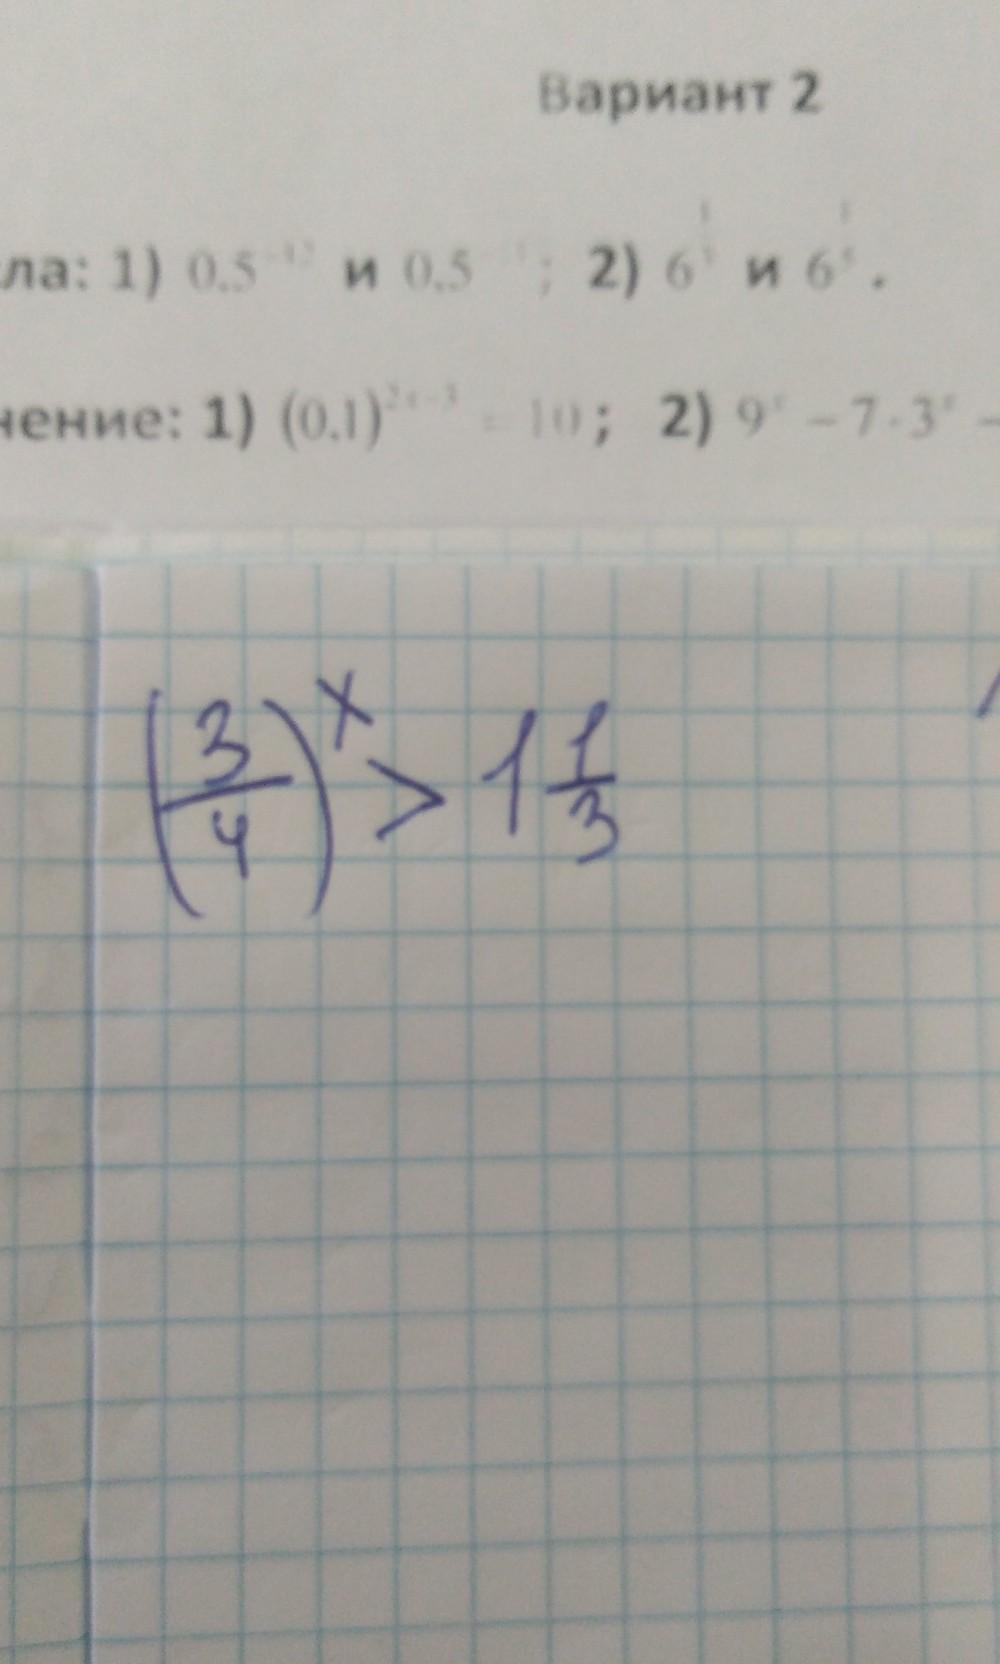 Вариант 2
ла: 1) 0,5⁻¹² и 0,5 ; 2) 6^(1/3) и 6^(1/5).
нение: 1) (0,1)^(2x-3) = 10; 2) 9ˣ − 7·3ˣ −
(3/4)ˣ > 1 1/3